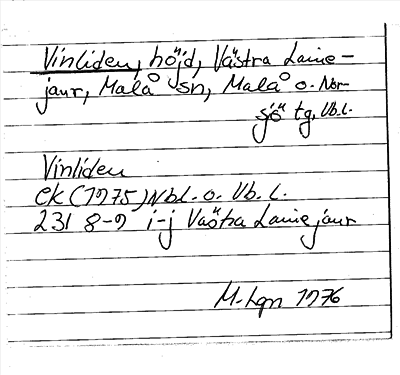 Vinliden, höjd, Västra Lainejaur,
Malå sn, Malå o. Norsjö tg, Vb.l.
Vinliden
ek (1975) Nbl. o. Vb. l.
231 8-9 i-j Västra Lainejaur
M. Lgn 1976